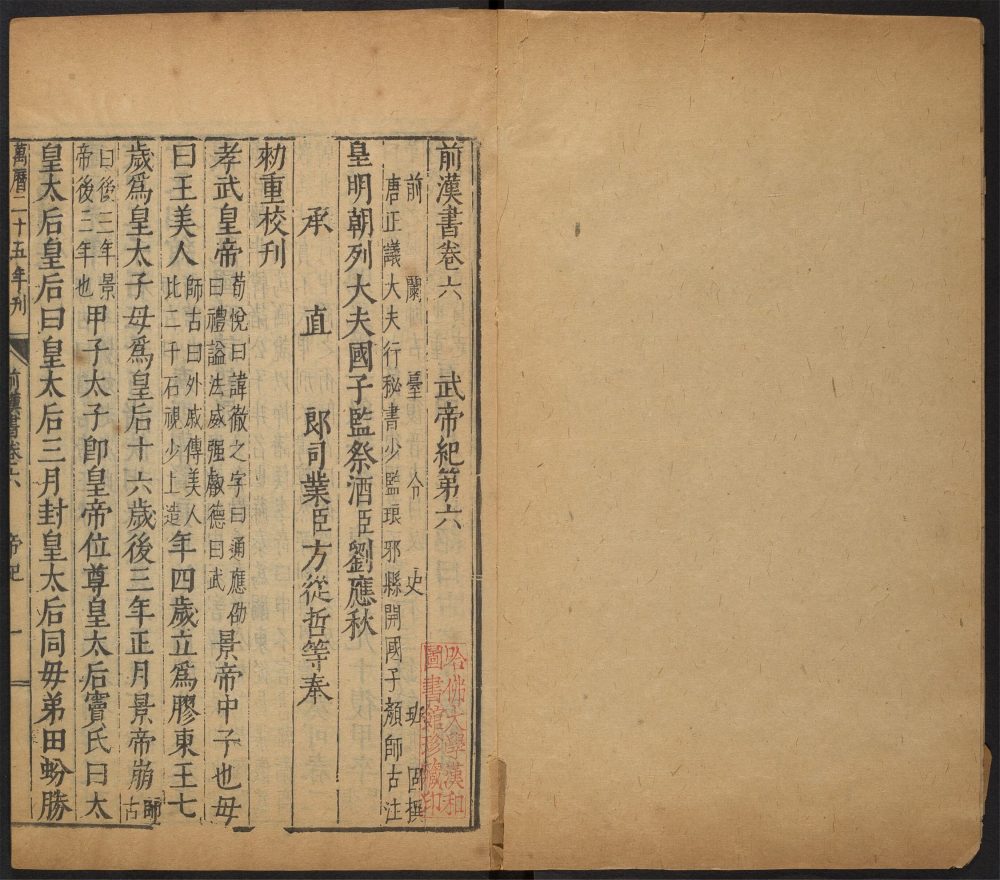 前漢書卷六 武帝紀第六
前蘭臺令史班固撰
唐正議大夫行秘書少監琅邪縣開國子顏師古注
皇明朝列大夫國子監祭酒臣劉應秋
承直郎司業臣方從哲等奉
勑重校刊
孝武皇帝荀悅曰諱徹之字曰通應劭曰禮謚法威强叡德曰武景帝中子也母
曰王美人師古曰外戚傳美人比二千石視少上造年四歲立爲膠東王七
歲爲皇太子母爲皇后十六歲後三年正月景帝崩師古
曰後三年景帝後三年也甲子太子卽皇帝位尊皇太后竇氏曰太
皇太后皇后曰皇太后三月封皇太后同母弟田蚡勝
萬曆二十五年刊 前漢書卷六 帝紀 一
哈佛大學漢和圖書館珍藏印